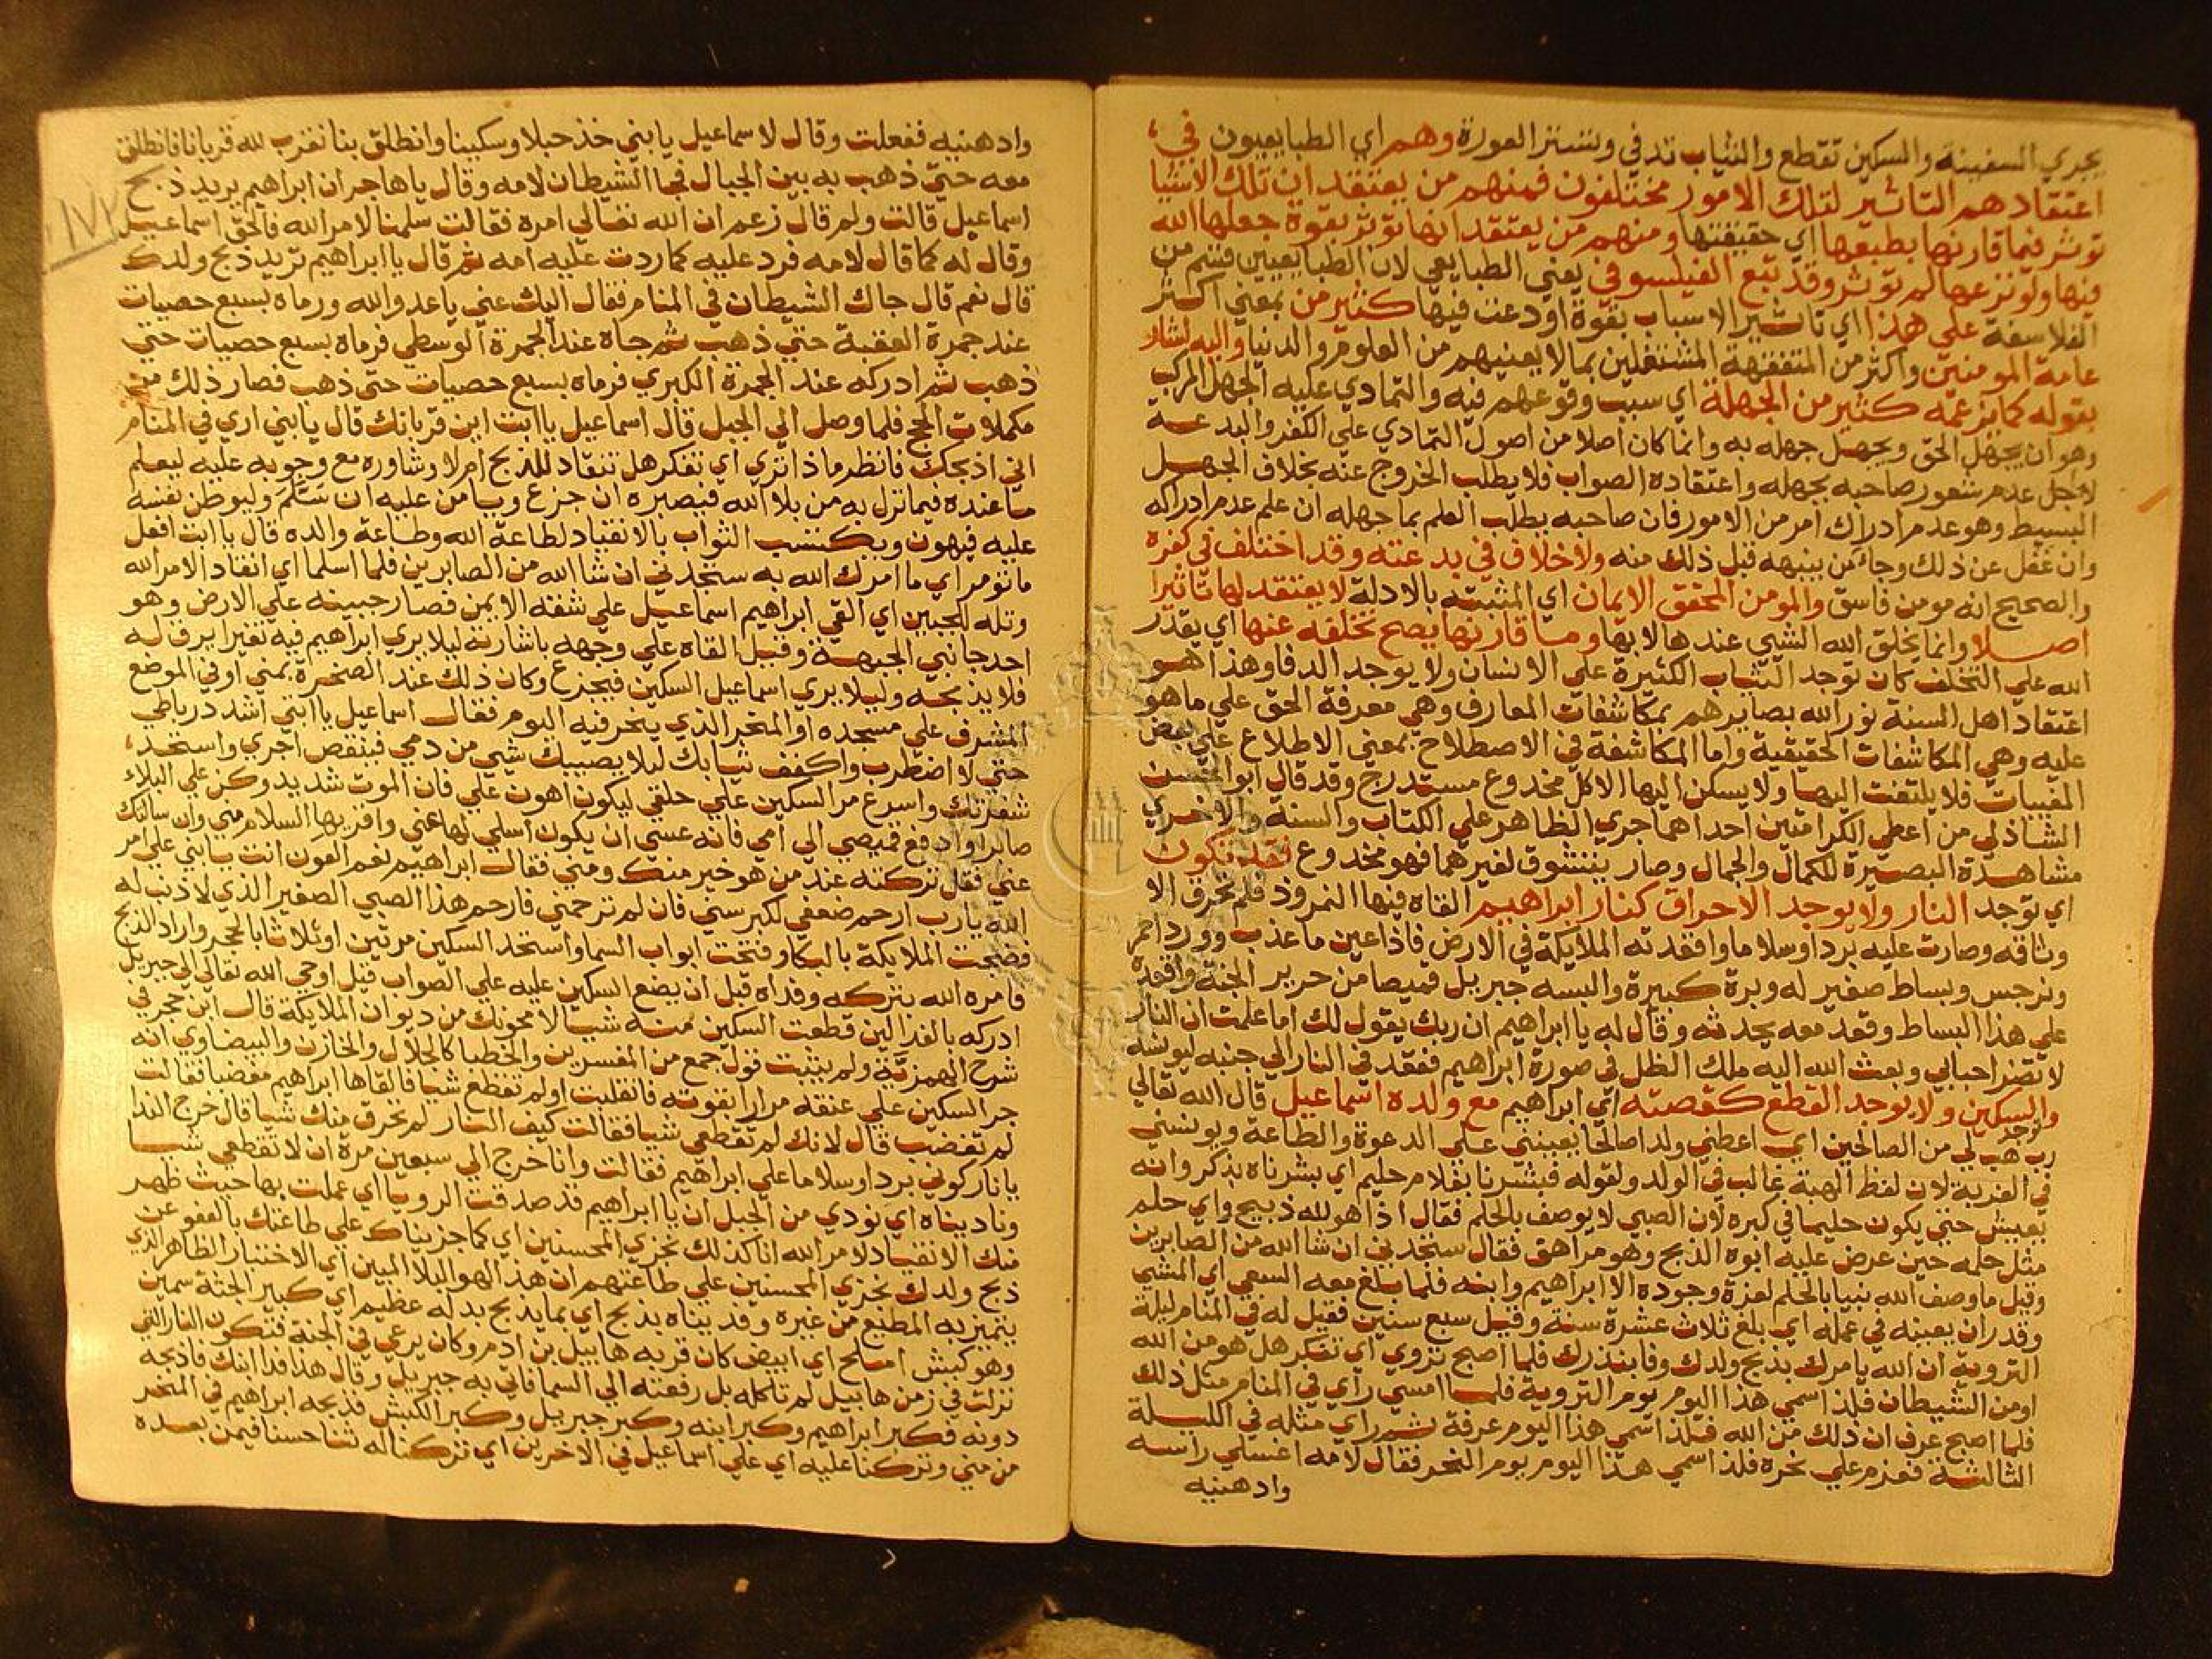 يجري السفينة والسكين تقطع والثياب تدفي وتستر العورة وهم اي الطبايعيون في
اعتقادهم التاثير لتلك الامور مختلفون فمنهم من يعتقد ان تلك الاشيا
توثر فيما قارنها بطبعها اي حقيقتها ومنهم من يعتقد انها توثر بقوة جعلها الله
فيها ولو نزعها لم توثر وقد تبع الفيلسوفي يعني الطبايعي لان الطبايعيين قسم من
الفلاسفة علي هذا اي تاثير الاسباب بقوة اودعت فيها كثير من بمعني اكثر
عامة المومنين واكثر من المتفقهة المشتغلين بما لا يعنيهم من العلوم والدنيا واليه اشار
بقوله كما يزعمه كثير من الجهلة اي سبب وقوعهم فيه والتمادي عليه الجهل المركب
وهو ان يجهل الحق ويجهل جهله به وانما كان اصلا من اصول التمادي علي الكفر والبدعة
لاجل عدم شعور صاحبه بجهله واعتقاده الصواب فلا يطلب الخروج عنه بخلاف الجهل
البسيط وهو عدم ادراك امر من الامور فان صاحبه يطلب العلم بما جهله ان علم عدم ادراكه
وان غفل عن ذلك وجا من ينبهه قبل ذلك منه ولا خلاف في بدعته وقد اختلف في كفره
والصحيح انه مومن فاسق والمومن المحقق الايمان اي المثبته بالادلة لا يعتقد لها تاثيرا
اصلا وانما يخلق الله الشي عندها لا بها وما قارنها يصح تخلفه عنها اي يقدر
الله علي التخلف كان توجد الثياب الكثيرة علي الانسان ولا يوجد الدفا وهذا هو
اعتقاد اهل السنة نور الله بصايرهم بمكاشفات المعارف وهي معرفة الحق علي ما هو
عليه وهي المكاشفات الحقيقية واما المكاشفة في الاصطلاح بمعني الاطلاع علي بعض
المغيبات فلا يلتفت اليها ولا يسكن اليها الا كل مخدوع مستدرج وقد قال ابو الحسن
الشاذلي من اعطي الكرامتين احداهما جري الظاهر علي الكتاب والسنة والاخري
مشاهدة البصيرة للكمال والجمال وصار يتشوق لغيرهما فهو مخدوع فقد تكون
اي توجد النار ولا يوجد الاحراق كنار ابراهيم القاه فيها النمروذ فلم تحرق الا
وثاقه وصارت عليه بردا وسلاما وافقدته الملايكة في الارض فاذا عين ما عذب وورد احمر
ونرجس وبساط صغير له وبرة كبيرة والبسه جبريل قميصا من حرير الجنة واقعده
علي هذا البساط وقعد معه يحدثه وقال له يا ابراهيم ان ربك يقول لك اما علمت ان النار
لا تضر احبابي وبعث الله اليه ملك الظل في صورة ابراهيم فقعد في النار الي جنبه ليونسه
وتوجد السكين ولا يوجد القطع كقصته اي ابراهيم مع ولده اسماعيل قال الله تعالي
رب هب لي من الصالحين اي اعطني ولدا صالحا يعينني علي الدعوة والطاعة ويونسني
في الغربة لان لفظ الهبة غالب في الولد ولقوله فبشرنا بغلام حليم اي بشرناه بذكر وانه
يعيش حتي يكون حليما في كبره لان الصبي لا يوصف بالحلم فقال اذا هو لله ذبيح واي حلم
مثل حلمه حين عرض عليه ابوه الذبح وهو مراهق فقال ستجدني ان شا الله من الصابرين
وقيل ما وصف الله نبيا بالحلم لعزة وجوده الا ابراهيم وابنه فلما بلغ معه السعي اي المشي
وقدر ان يعينه في عمله اي بلغ ثلاث عشرة سنة وقيل سبع سنين فقيل له في المنام ليلة
التروية ان الله يامرك بذبح ولدك وفا بنذرك فلما اصبح تروي اي تفكر هل هو من الله
او من الشيطان فلذا سمي هذا اليوم يوم التروية فلما امسي راي في المنام مثل ذلك
فلما اصبح عرف ان ذلك من الله فلذا سمي هذا اليوم عرفة ثم راي مثله في الليلة
الثالثة فعزم علي نحره فلذا سمي هذا اليوم يوم النحر فقال لامه اغسلي راسه
وادهنيه
وادهنيه ففعلت وقال لاسماعيل يا بني خذ حبلا وسكينا وانطلق بنا نقرب لله قربانا فانطلق
معه حتي ذهب به بين الجبال فجا الشيطان لامه وقال يا هاجر ان ابراهيم يريد ذبح
١٧٢
اسماعيل قالت ولم قال زعم ان الله تعالي امره فقالت سلمنا لامر الله فالحق اسماعيل
وقال له كما قال لامه فرد عليه كما ردت عليه امه ثم قال يا ابراهيم تريد ذبح ولدك
قال نعم قال جاك الشيطان في المنام فقال اليك عني يا عدو الله ورماه بسبع حصيات
عند جمرة العقبة حتي ذهب ثم جاه عند الجمرة الوسطي فرماه بسبع حصيات حتي
ذهب ثم ادركه عند الجمرة الكبري فرماه بسبع حصيات حتي ذهب فصار ذلك من
مكملات الحج فلما وصل الي الجبل قال اسماعيل يا ابت اين قربانك قال يا بني اري في المنام
اني اذبحك فانظر ماذا تري اي تفكر هل تنقاد للذبح ام لا وشاوره مع وجوبه عليه ليعلم
ما عنده فيما نزل به من بلا الله فيصبره ان جزع ويامن عليه ان سلم وليوطن نفسه
عليه فيهون ويكتسب الثواب بالانقياد لطاعة الله وطاعة والده قال يا ابت افعل
ما تومر اي ما امرك الله به ستجدني ان شا الله من الصابرين فلما اسلما اي انقادا لامر الله
وتله للجبين اي القي ابراهيم اسماعيل علي شقه الايمن فصار جبينه علي الارض وهو
احد جانبي الجبهة وقيل القاه علي وجهه باشارته ليلا يري ابراهيم فيه تغيرا يرق له
فلا يذبحه وليلا يري اسماعيل السكين فيجزع وكان ذلك عند الصخرة بمني او في الموضع
المشرف علي مسجده او المنحر الذي ينحر فيه اليوم فقال اسماعيل يا ابتي اشدد رباطي
حتي لا اضطرب واكفف ثيابك ليلا يصيبك شي من دمي فينقص اجري واستحد
شفرتك واسرع مر السكين علي حلقي ليكون اهون علي فان الموت شديد وكن علي البلاء
صابرا وادفع قميصي الي امي فانه عسي ان يكون اسلي لها عني واقريها السلام مني وان سالتك
عني فقل تركته عند من هو خير منك ومني فقال ابراهيم نعم العون انت يا بني علي امر
الله يا رب ارحم ضعفي لكبر سني فان لم ترحمني فارحم هذا الصبي الصغير الذي لا ذنب له
فضجت الملايكة بالبكا وفتحت ابواب السما واستحد السكين مرتين او ثلاثا بالحجر واراد الذبح
فامره الله بتركه وفداه قبل ان يضع السكين عليه علي الصواب قيل اوحي الله تعالي الي جبريل
ادركه بالفدا لين قطعت السكين منه شيا لامحونك من ديوان الملايكة قال ابن حجر في
شرح الهمزية ولم يثبت قول جمع من المفسرين والخطبا كالجلال والخازن والبيضاوي انه
جر السكين علي عنقه مرارا بقوته فانقلبت او لم تقطع شيا فالقاها ابراهيم مغضبا فقالت
لم تغضب قال لانك لم تقطعي شيا فقالت كيف النار لم تحرق منك شيا قال خرج الندا
يا نار كوني بردا وسلاما علي ابراهيم فقالت وانا خرج الي سبعين مرة ان لا تقطعي شيا
وناديناه اي نودي من الجبل ان يا ابراهيم قد صدقت الرويا اي عملت بها حيث ظهر
منك الانقياد لامر الله انا كذلك نجزي المحسنين اي كما جزيناك علي طاعتك بالعفو عن
ذبح ولدك نجزي المحسنين علي طاعتهم ان هذا لهو البلا المبين اي الاختبار الظاهر الذي
يتميز به المطيع من غيره وفديناه بذبح اي بما يذبح بدله عظيم اي كبير الجثة سمين
وهو كبش املح اي ابيض كان قربه هابيل بن ادم وكان يرعي في الجنة فتكون النار التي
نزلت في زمن هابيل لم تاكله بل رفعته الي السما فاتي به جبريل وقال هذا فدا ابنك فاذبحه
دونه فكبر ابراهيم وكبر ابنه وكبر جبريل وكبر الكبش فذبحه ابراهيم في المنحر
من مني وتركنا عليه اي علي اسماعيل في الاخرين اي تركنا له ثنا حسنا فيمن بعده